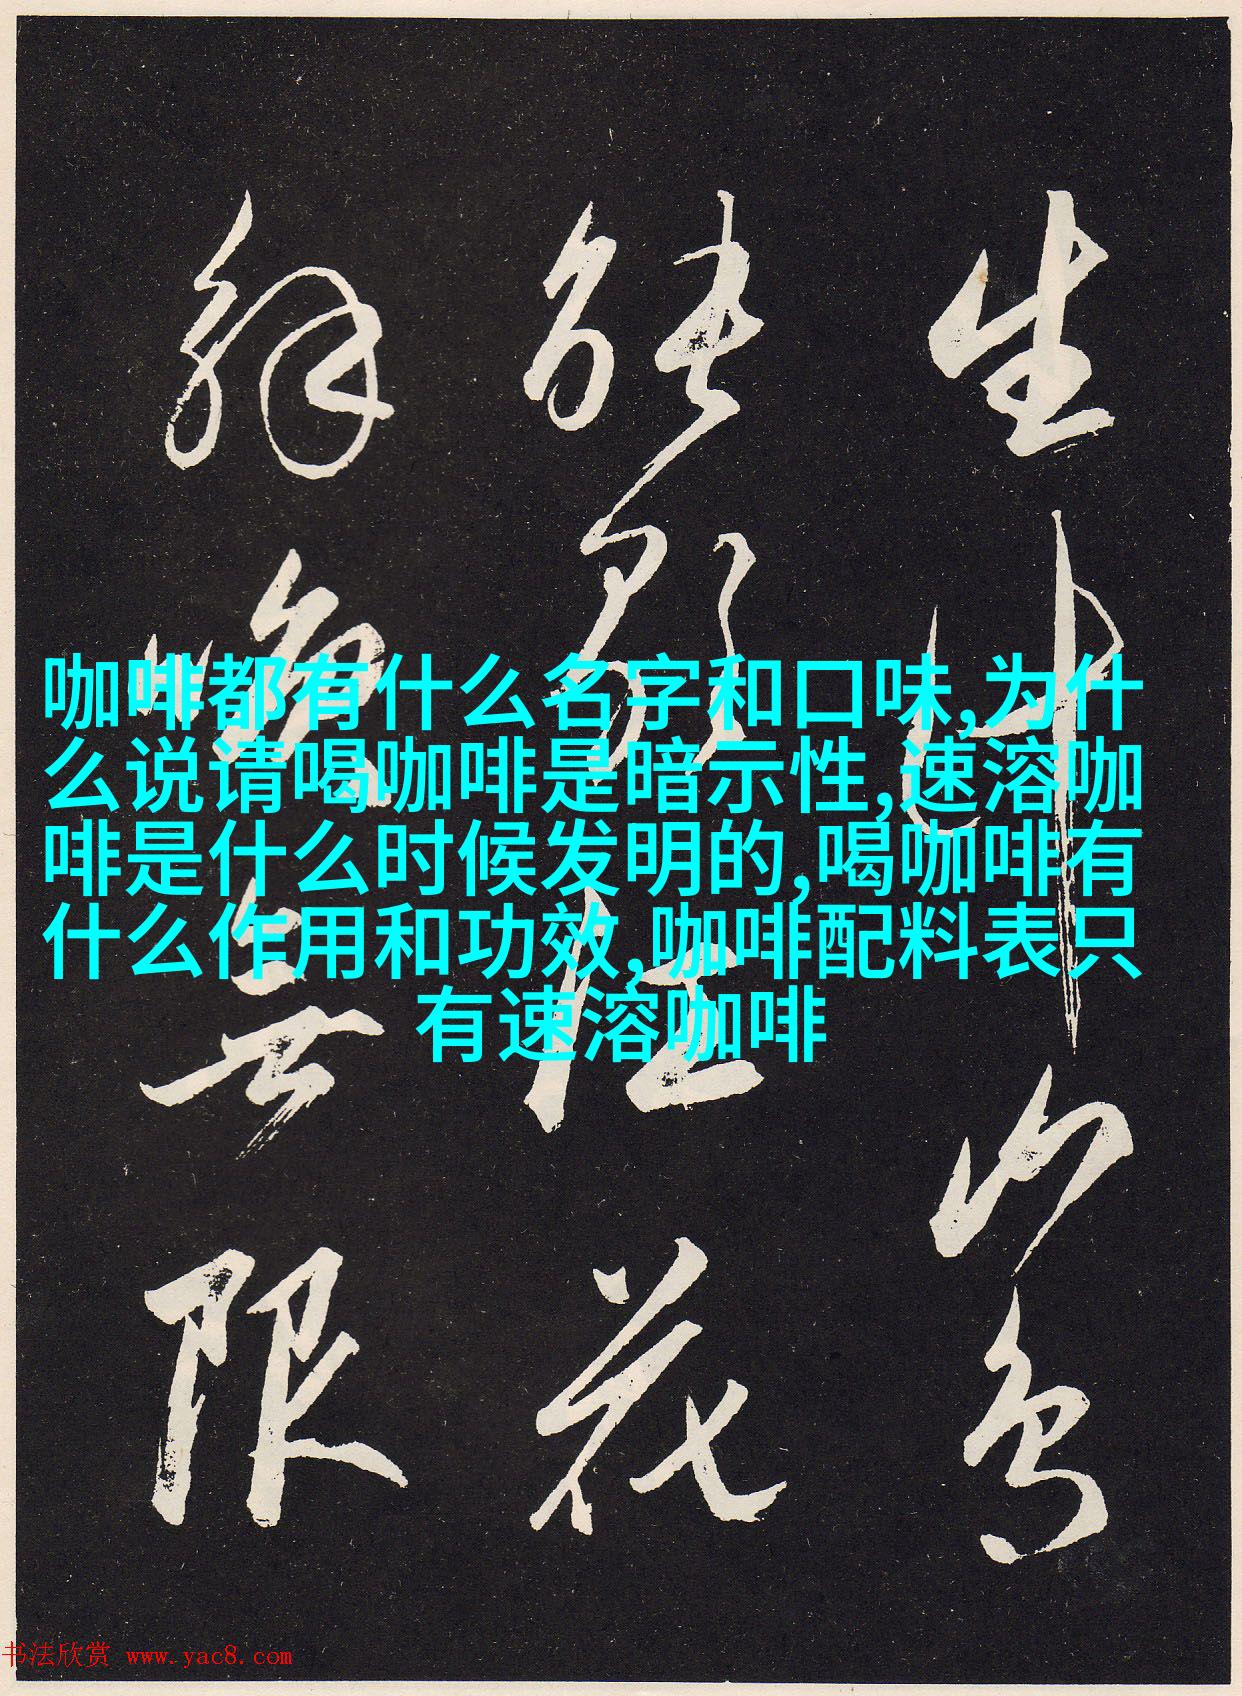 生
能 花
解 無限
咖啡都有什么名字和口味,为什
么说请喝咖啡是暗示性,速溶咖
啡是什么时候发明的,喝咖啡有
什么作用和功效,咖啡配料表只
有速溶咖啡
书法欣赏 www.yac8.com